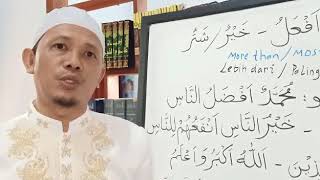 اَفْعَلُ - خَيْرٌ / شَرٌّ
More than / MOST
Lebih dari / Paling
: مُحَمَّدٌ اَفْضَلُ النَّاسِ
- خَيْرُ النَّاسِ اَنْفَعُهُمْ لِلنَّاسِ
- اَللهُ اَكْبَرُ وَ اَعْلَمُ